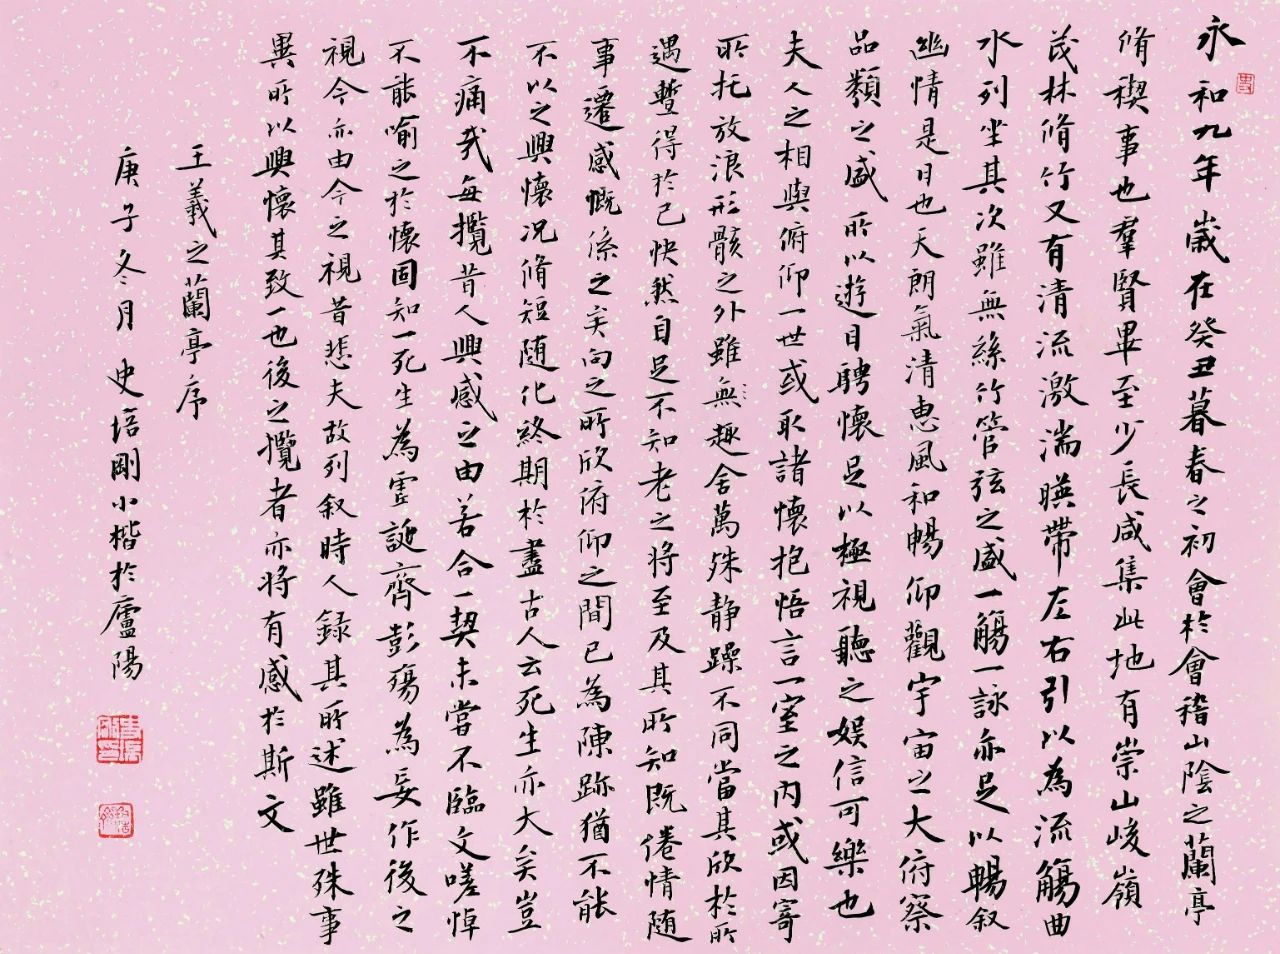 永和九年歲在癸丑暮春之初會於會稽山陰之蘭亭
脩稧事也羣賢畢至少長咸集此地有崇山峻嶺
茂林脩竹又有清流激湍暎帶左右引以為流觴曲
水列坐其次雖無絲竹管弦之盛一觴一詠亦足以暢叙
幽情是日也天朗氣清惠風和暢仰觀宇宙之大俯察
品類之盛所以遊目騁懷足以極視聽之娛信可樂也
夫人之相與俯仰一世或取諸懷抱悟言一室之內或因寄
所托放浪形骸之外雖無趣舍萬殊静躁不同當其欣於所
遇暫得於己快然自足不知老之将至及其所知既倦情随
事遷感慨係之矣向之所欣俯仰之間已為陳跡猶不能
不以之興懷况脩短随化終期於盡古人云死生亦大矣豈
不痛哉每攬昔人興感之由若合一契未嘗不臨文嗟悼
不能喻之於懷固知一死生為虛誕齊彭殤為妄作後之
視今亦由今之視昔悲夫故列叙時人録其所述雖世殊事
異所以興懷其致一也後之攬者亦将有感於斯文
王羲之蘭亭序
庚子冬月史培剛小楷於廬陽